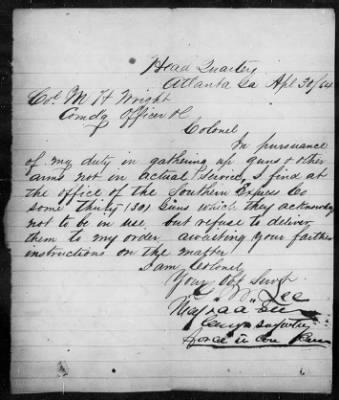 Head Quarters
Atlanta Ga Apl 30/64
Col. M H Wright
Comdg Officer &c
Colonel
In pursuance
of my duty in gathering up guns & other
arms not in actual service, I find at
the office of the Southern Express Co
some thirty (30) Guns which they acknowledge
not to be in use. but refuse to deliver
them to my order, awaiting your farther
instructions on the matter
I am Colonel
Your Obt Servt
Lee
Maj